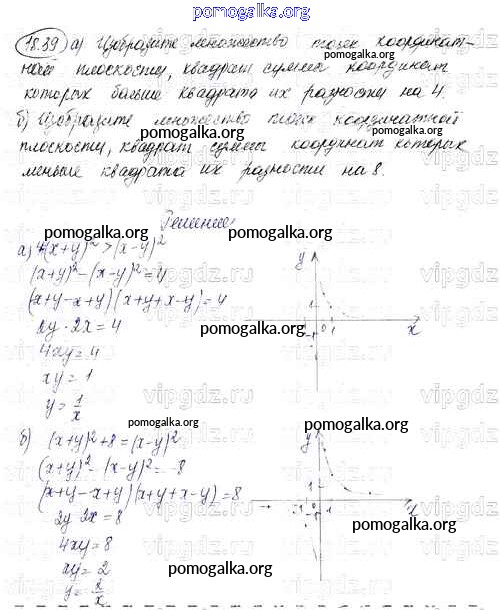 pomogalka.org
18.39 а) Изобразите множество точек координат-
ной плоскости, квадрат суммы координат
которых больше квадрата их разности на 4.
pomogalka.org
б) Изобразите множество точек координатной
плоскости, квадрат суммы координат которых
меньше квадрата их разности на 8.
pomogalka.org
Решение
pomogalka.org
а) (x+y)² > (x-y)²
(x+y)²-(x-y)²=4
(x+y-x+y)(x+y+x-y)=4
2y·2x=4
pomogalka.org
4xy=4
xy=1
y=1/x
y
1
-1 0 1
x
pomogalka.org
pomogalka.org
б) (x+y)²+8=(x-y)²
(x+y)²-(x-y)²=-8
(x+y-x+y)(x+y+x-y)=8
2y·2x=8
4xy=8
xy=2
y=2/x
y
1
-1 0 1
x
pomogalka.org
pomogalka.org
vipgdz.ru